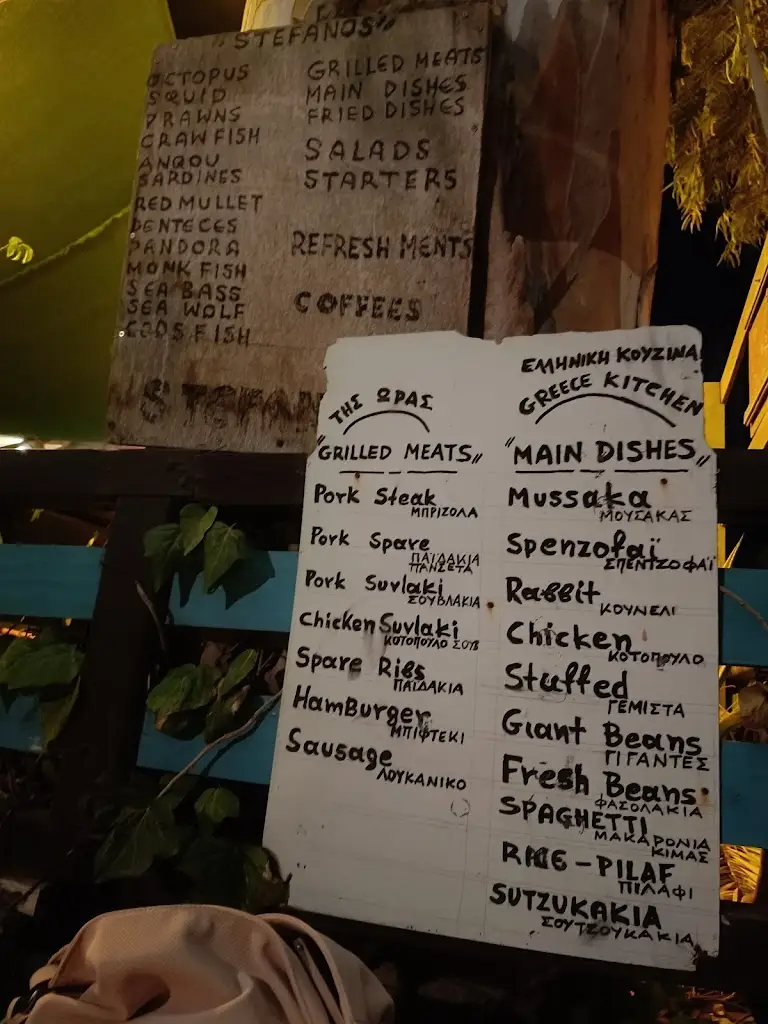 "STEFANOS"
OCTOPUS
SQUID
PRAWNS
CRAWFISH
ANQOU
SARDINES
RED MULLET
DENTECES
PANDORA
MONK FISH
SEA BASS
SEA WOLF
CODS FISH
GRILLED MEATS
MAIN DISHES
FRIED DISHES
SALADS
STARTERS
REFRESHMENTS
COFFEES
STEFAN
ΤΗΣ ΩΡΑΣ
"GRILLED MEATS"
Pork Steak
ΜΠΡΙΖΟΛΑ
Pork Spare
ΠΑΪΔΑΚΙΑ
ΠΑΝΣΕΤΑ
Pork Suvlaki
ΣΟΥΒΛΑΚΙΑ
Chicken Suvlaki
ΚΟΤΟΠΟΥΛΟ ΣΟΥΒ
Spare Ribs
ΠΑΪΔΑΚΙΑ
HamBurger
ΜΠΙΦΤΕΚΙ
Sausage
ΛΟΥΚΑΝΙΚΟ
ΕΛΛΗΝΙΚΗ ΚΟΥΖΙΝΑ
GREECE KITCHEN
"MAIN DISHES"
Mussaka
ΜΟΥΣΑΚΑΣ
Spenzofaï
ΣΠΕΝΤΖΟΦΑΪ
Rabbit
ΚΟΥΝΕΛΙ
Chicken
ΚΟΤΟΠΟΥΛΟ
Stuffed
ΓΕΜΙΣΤΑ
Giant Beans
ΓΙΓΑΝΤΕΣ
Fresh Beans
ΦΑΣΟΛΑΚΙΑ
SPAGHETTI
ΜΑΚΑΡΟΝΙΑ
ΚΙΜΑΣ
RICE-PILAF
ΠΙΛΑΦΙ
SUTZUKAKIA
ΣΟΥΤΣΟΥΚΑΚΙΑ